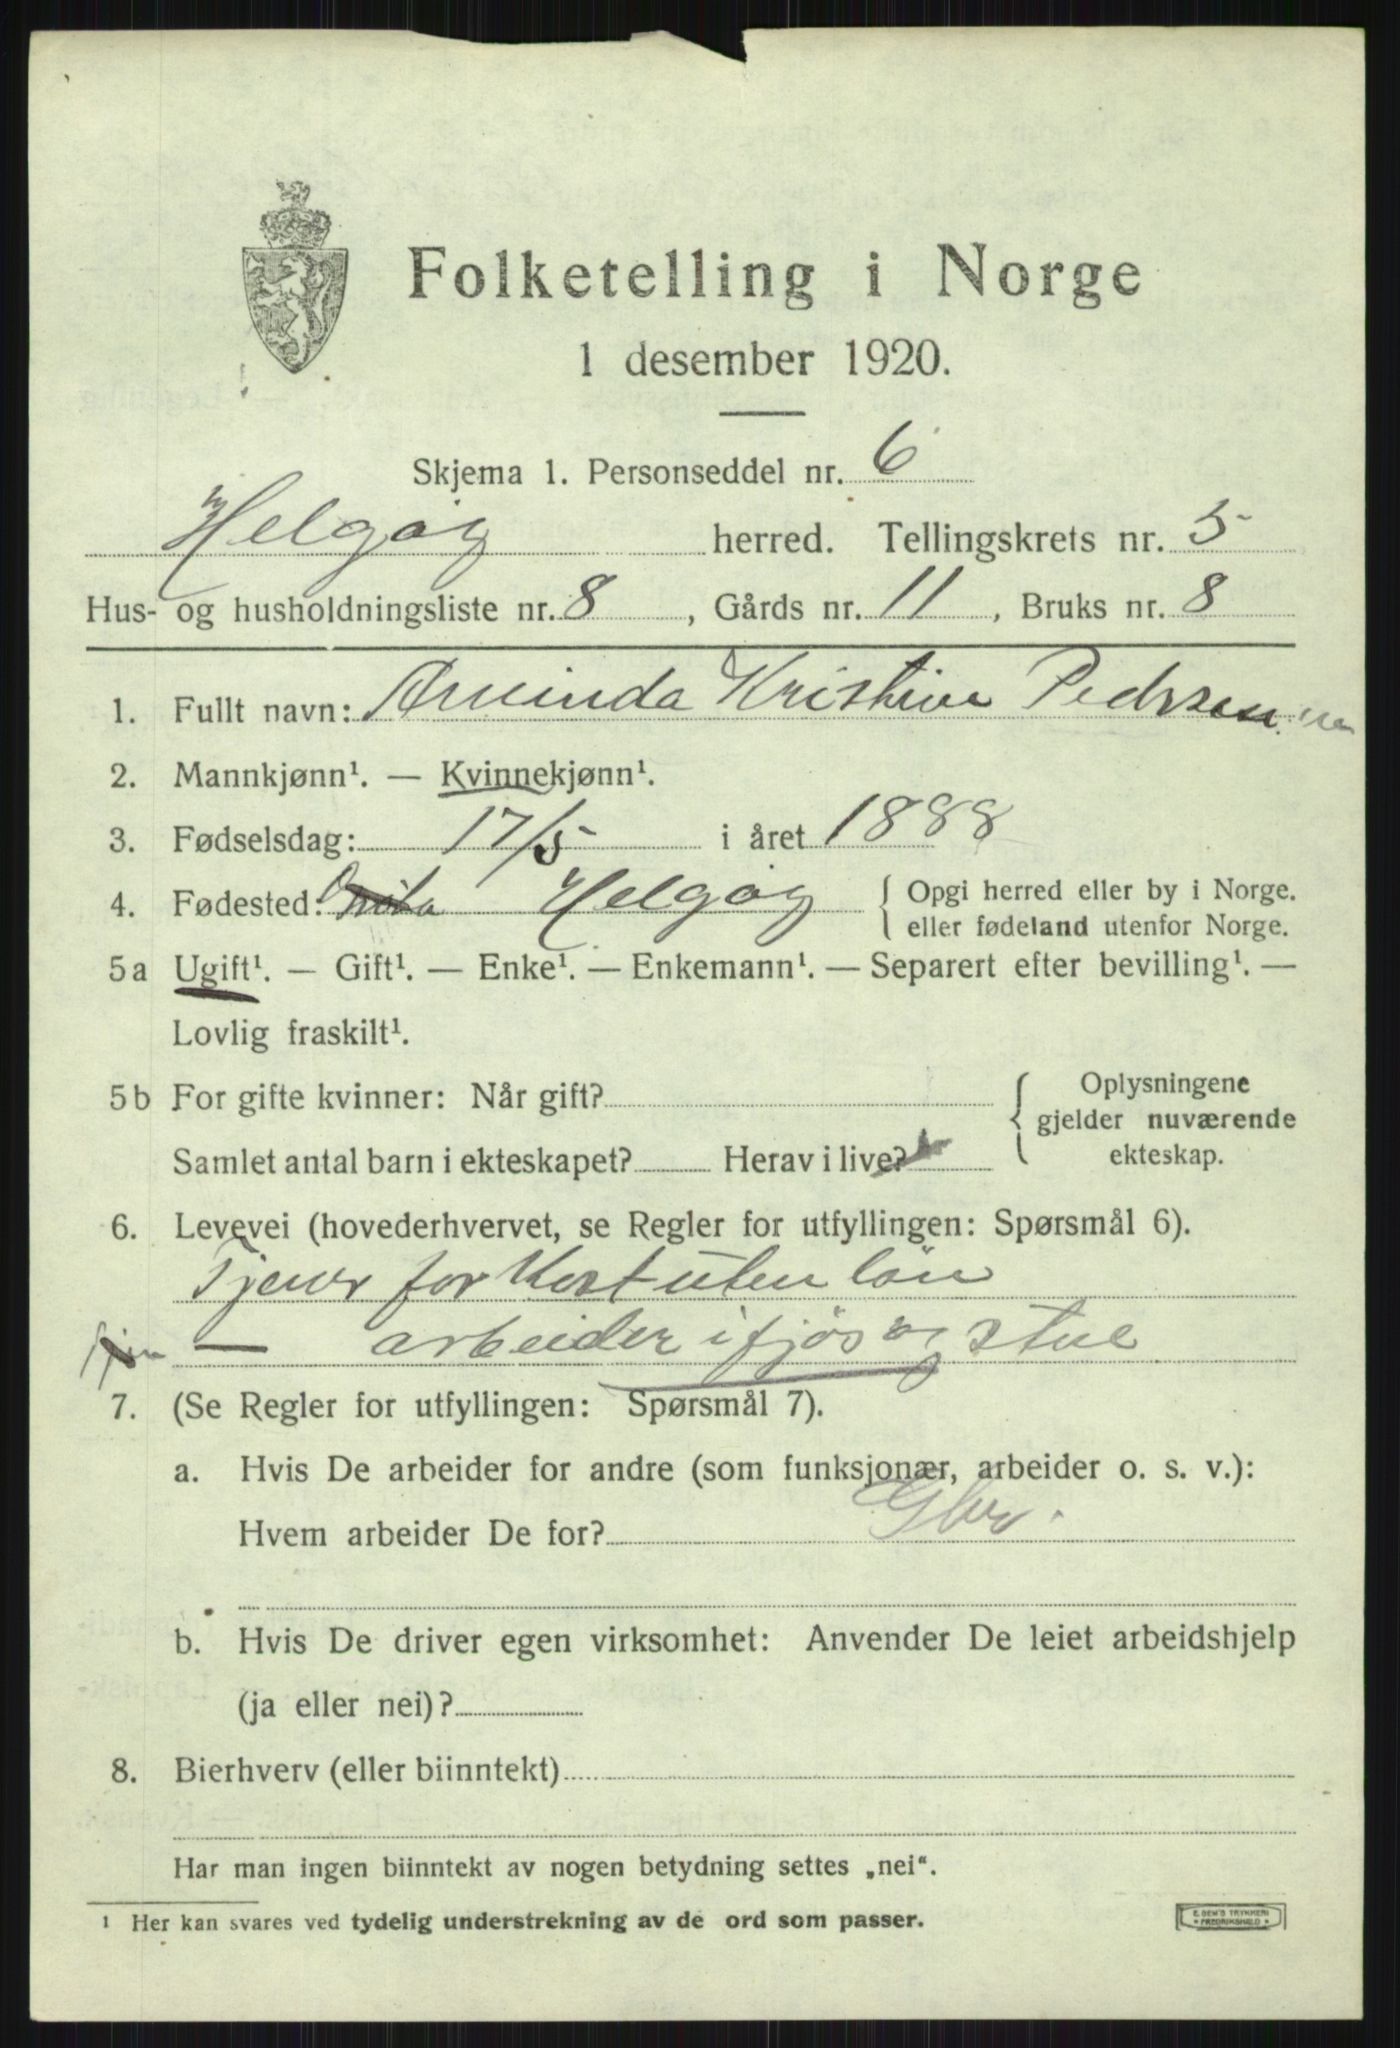 Folketelling i Norge
1 desember 1920.
Skjema 1. Personseddel nr. 6
Helgöy herred. Tellingskrets nr. 5
Hus- og husholdningsliste nr. 8, Gårds nr. 11, Bruks nr. 8
1. Fullt navn: Arvinda Kristine Pedersen
2. Mannkjønn¹. — Kvinnekjønn¹.
3. Fødselsdag: 17/5 i året 1888
4. Fødested: Helgöy { Opgi herred eller by i Norge.
eller fødeland utenfor Norge.
5a Ugift¹. — Gift¹. — Enke¹. — Enkemann¹. — Separert efter bevilling¹. —
Lovlig fraskilt¹.
5b For gifte kvinner: Når gift?
Samlet antal barn i ekteskapet? Herav i live?
Oplysningene
gjelder nuværende
ekteskap.
6. Levevei (hovederhvervet, se Regler for utfyllingen: Spørsmål 6).
Tjener for Kost uten lön
— arbeider i fjös og stue
7. (Se Regler for utfyllingen: Spørsmål 7).
a. Hvis De arbeider for andre (som funksjonær, arbeider o. s. v.):
Hvem arbeider De for? Gbr.
b. Hvis De driver egen virksomhet: Anvender De leiet arbeidshjelp
(ja eller nei)?
8. Bierhverv (eller biinntekt)
Har man ingen biinntekt av nogen betydning settes „nei“.
¹ Her kan svares ved tydelig understrekning av de ord som passer.
E. SEM'S TRYKKERI
FREDRIKSHALD